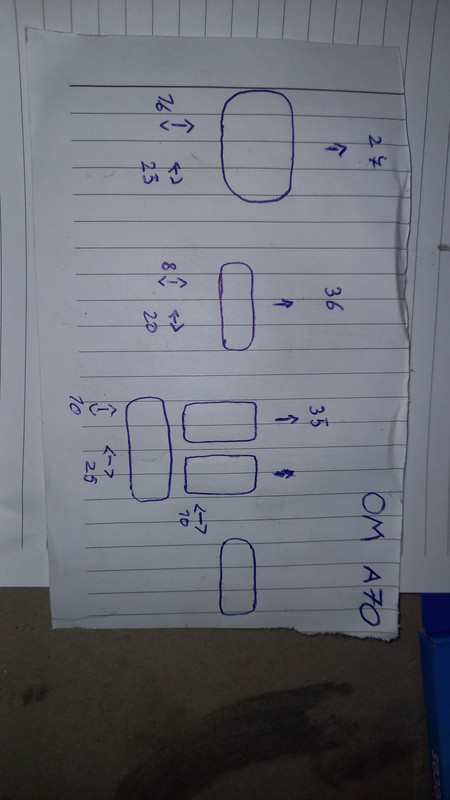 27
OM A70
36
35
16
8
20
10
10
25